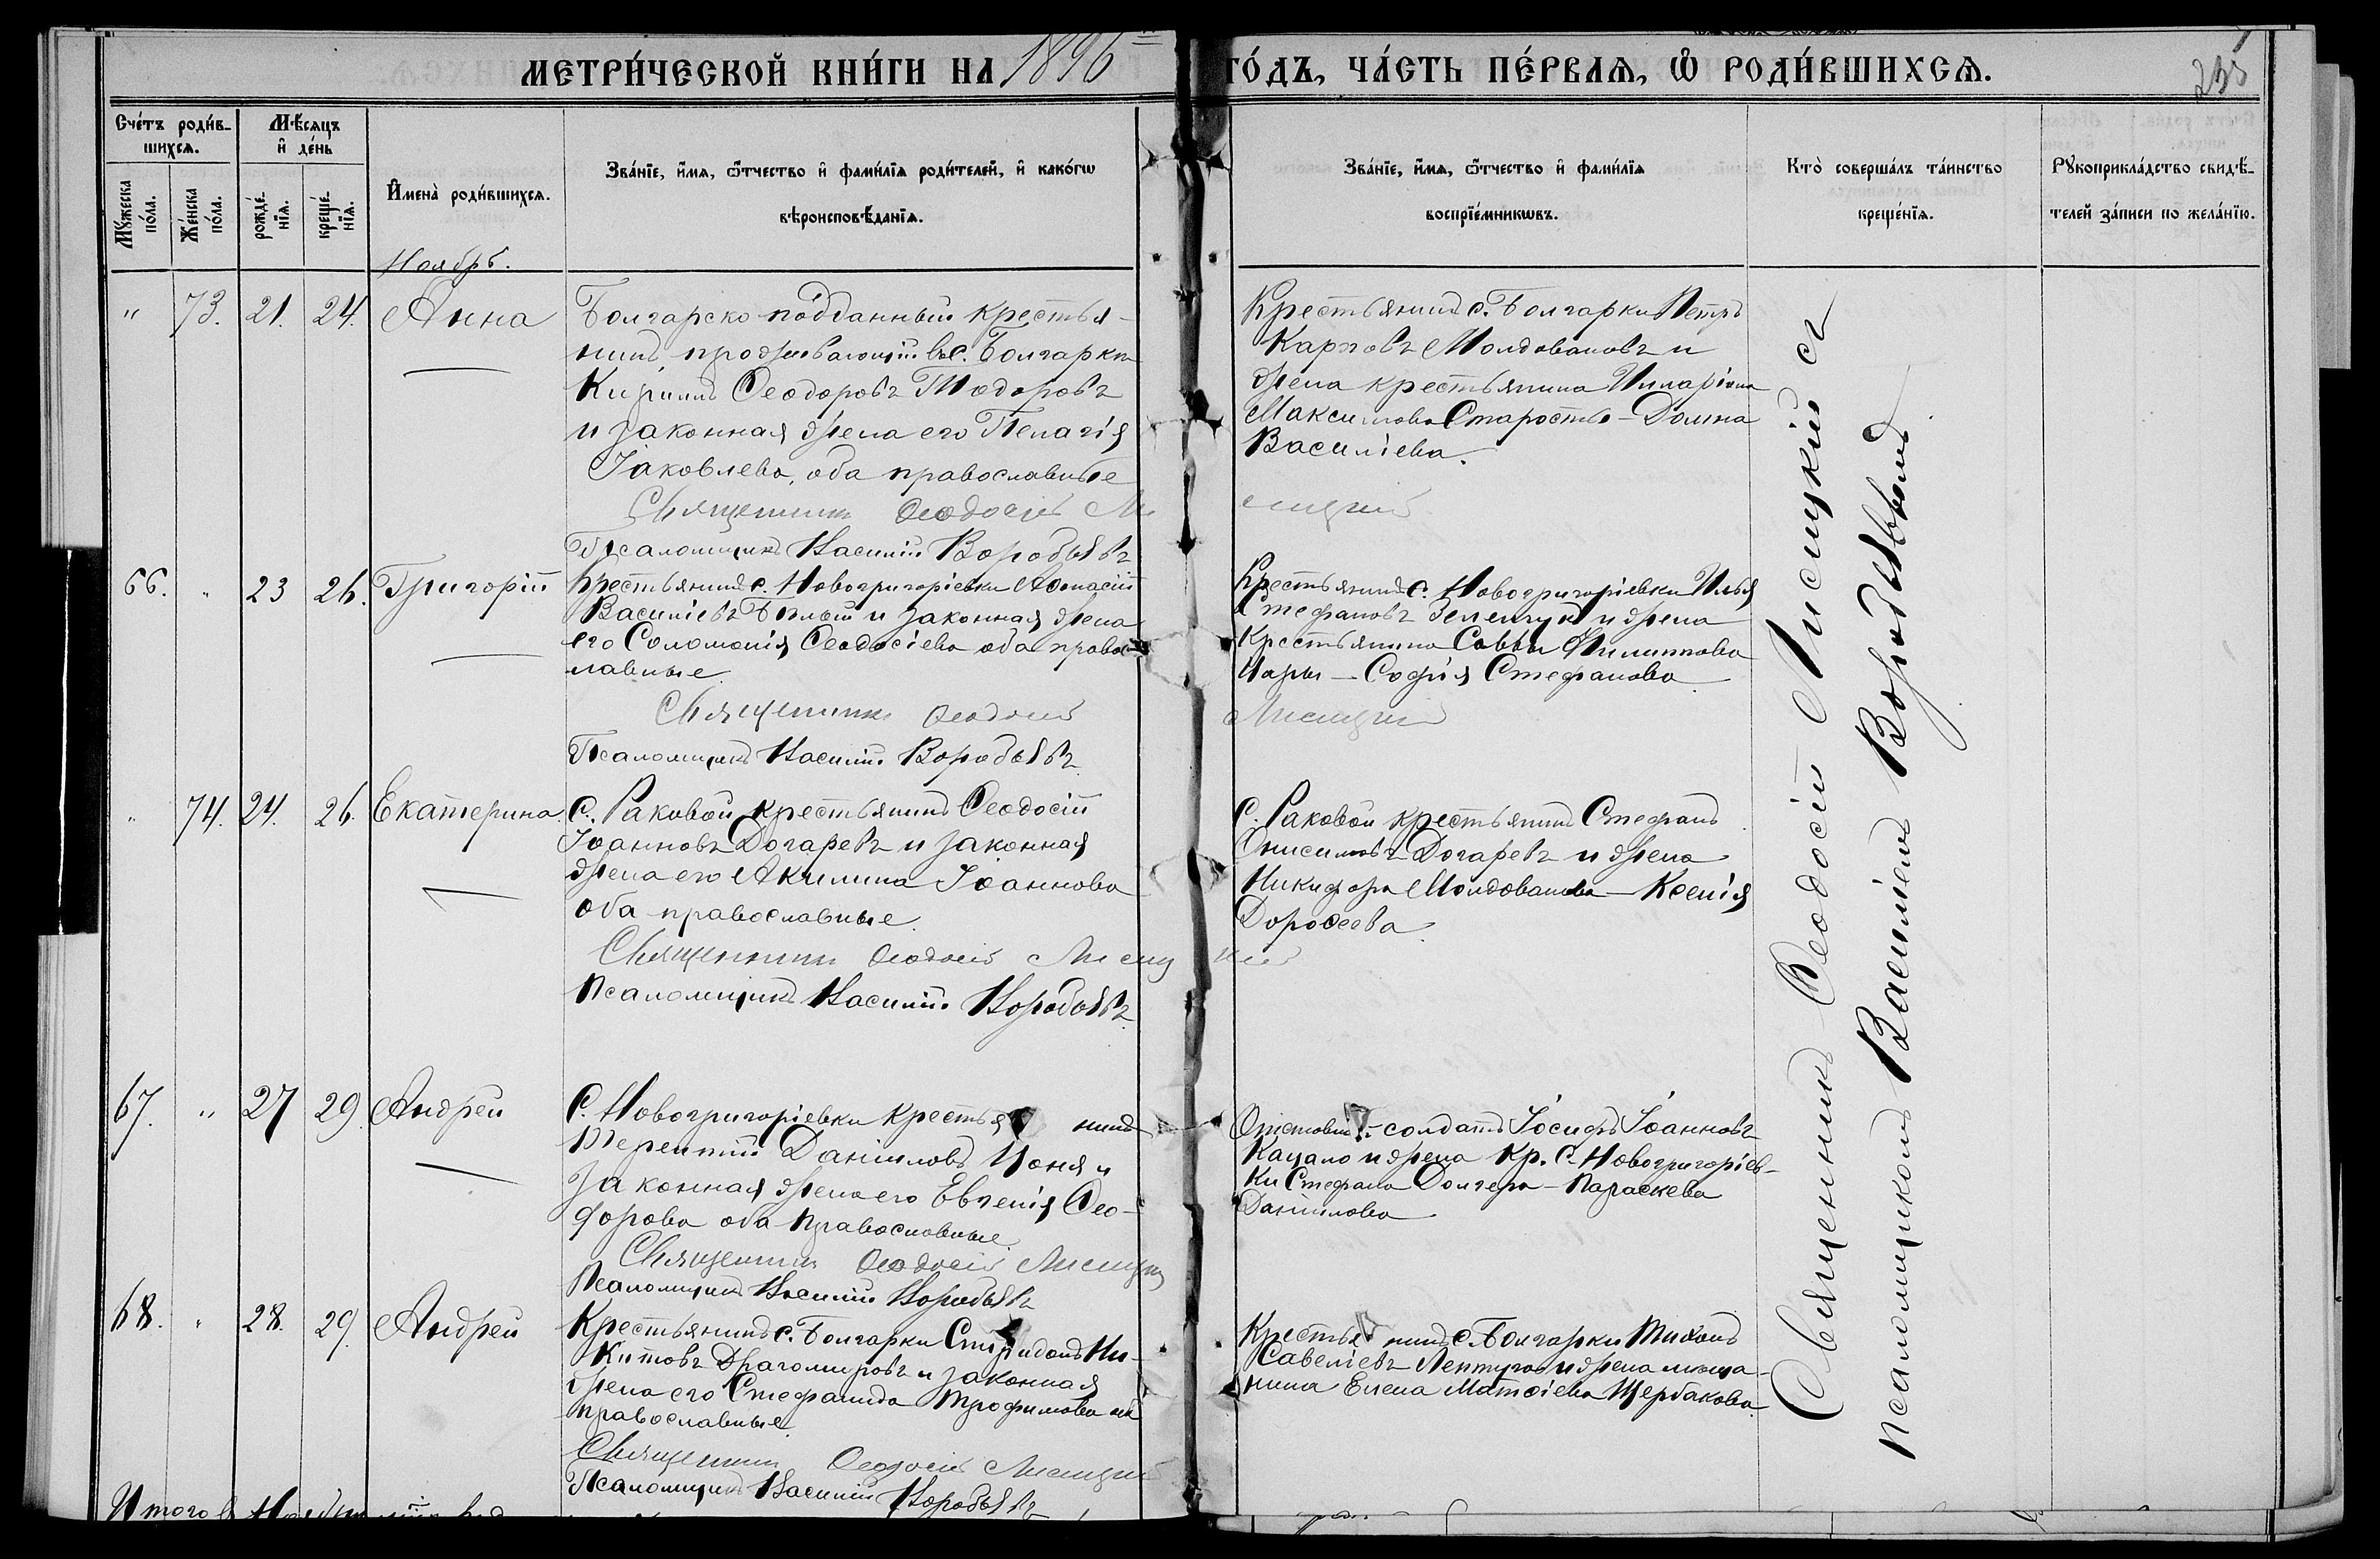 МЕТРИ́ЧЕСКОЙ КНИ́ГИ НА 1896
ГО́ДЪ, ЧА́СТЬ ПЕ́РВАѦ, Ѽ РОДИ́ВШИХСѦ.
235
Сче́тъ роди́в-
шихсѧ.
Мѣ́сѧцъ
и҆ де́нь
Мꙋ́жеска
по́ла.
Же́нска
по́ла.
рожде́-
нїѧ.
креще́-
нїѧ.
И҆мена̀ роди́вшихсѧ.
Зва́нїе, и҆́мѧ, ѻ҆́тчество и҆ фами́лїѧ роди́телей, и҆ како́гѡ
вѣроисповѣ́данїѧ.
Зва́нїе, и҆́мѧ, ѻ҆́тчество и҆ фами́лїѧ
воспрїе́мникѡвъ.
Кто̀ соверша́лъ та́инство
креще́нїѧ.
Рꙋкоприкла́дство свидѣ́-
телей за́писи по жела́нїю.
Ноябрь.
" 73. 21. 24. Анна
Болгарско подданный крестья-
нинъ проживающій въ с. Болгарки
Кириллъ Ѳеодоровъ Тодоровъ
и законная жена его Пелагія
Іаковлева, оба православные
Священникъ Ѳеодосій Лисицкій
Псаломщикъ Василій Воробьевъ
Крестьянинъ с. Болгарки Петръ
Карповъ Молдовановъ и
жена крестьянина Илларіона
Максимова Старосты - Домна
Василіева.
66. " 23 26. Григорій
Крестьянинъ с. Новогригоріевки Аѳанасій
Василіевъ Бѣлый и законная жена
его Соломонія Ѳеодосіева оба правос-
лавные.
Священникъ Ѳеодосій Лисицкій
Псаломщикъ Василій Воробьевъ
Крестьянинъ с. Новогригоріевки Илья
Стефановъ Зеленчукъ и жена
крестьянина Саввы Филиппова
Чары — Софія Стефанова
" 74. 24. 26. Екатерина.
С. Раковой крестьянинъ Ѳеодосій
Іоанновъ Догаревъ и законная
жена его Акилина Іоаннова
оба православные.
Священникъ Ѳеодосій Лисицкій
Псаломщикъ Василій Воробьевъ
С. Раковой крестьянинъ Стефанъ
Онисимовъ Догаревъ и жена
Никифора Молдованова — Ксенія
Дороѳеева.
67. " 27 29. Андрей
С. Новогригоріевки крестьянинъ
Терентій Даніиловъ и
законная жена его Евгенія Ѳео-
дорова оба православные.
Священникъ Ѳеодосій Лисицкій
Псаломщикъ Василій Воробьевъ
Отставной солдатъ Іосифъ Іоанновъ
Кацало и жена кр. с. Новогригоріев-
ки Стефана Долгера - Параскева
Даніилова
68. " 28. 29. Андрей
Крестьянинъ с. Болгарки Спиридонъ Ни-
китовъ Драгомировъ и законная
жена его Стефанида Трофимова оба
православные
Священникъ Ѳеодосій Лисицкій
Псаломщикъ Василій Воробьевъ
Крестьянинъ с. Болгарки Тихонъ
Савеліевъ и жена мѣща-
нина Елена Матѳіева Щербакова.
Священникъ Ѳеодосій Лисицкій съ
псаломщикомъ Василіемъ Воробьевымъ
Итого въ Ноябрѣ